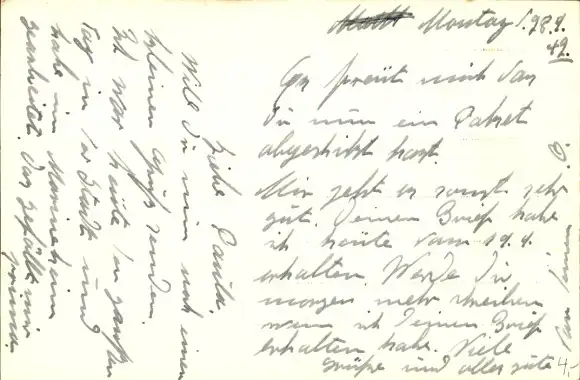 Montag d. 28.9.
42.
Liebe Paula.
Will Dir nun noch einen
kleinen Gruß senden.
Ich war heute den ganzen
Tag in der Stadt und
habe im Marineheim
gearbeitet. Das gefällt mir
prima.
Es freut mich das
Du nun ein Paket
abgeschickt hast.
Mir geht es sonst sehr
gut. Deinen Brief habe
ich heute vom 19.9.
erhalten. Werde Dir
morgen mehr schreiben
wenn ich Deinen Brief
erhalten habe. Viele
Grüße und alles gute